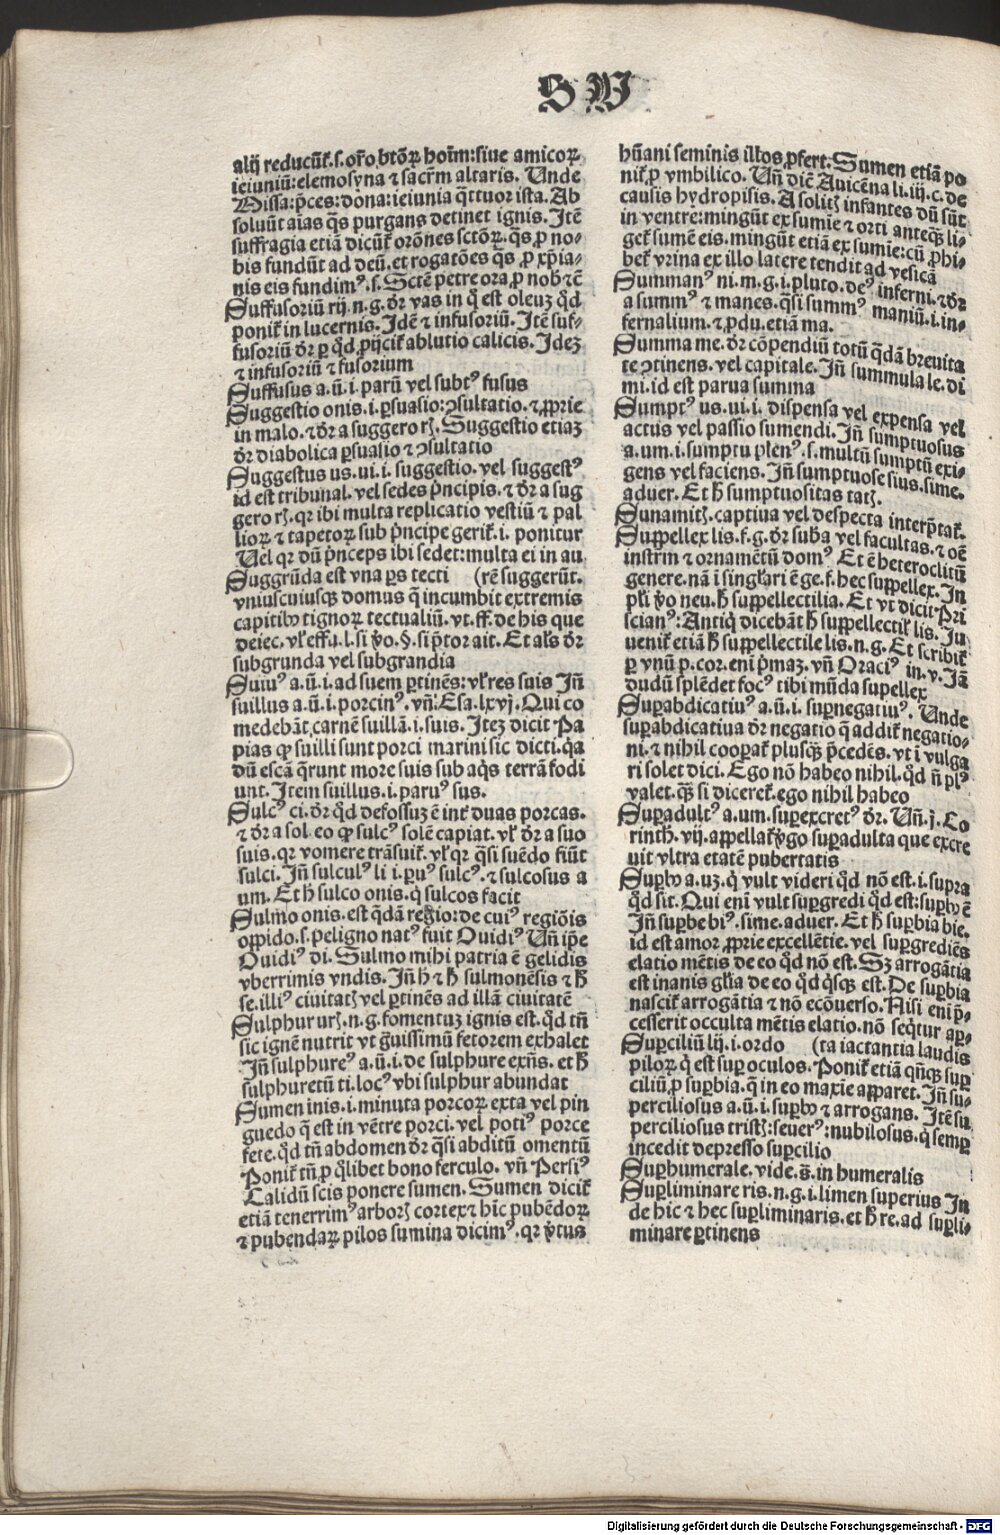 S V
alij reducūt̉.s.or̄o btōꝝ hoīm:siue amicoꝝ
ieiuniū:elemosyna ⁊ sacr̄m altaris. Unde
Missa:p̄ces:dona:ieiunia q̄ttuor ista. Ab
soluūt aīas q̄s purgans detinet ignis. Itē
suffragia etiā dicūt̉ orōnes sctōꝝ. q̄s ꝓ no-
bis fundūt ad deū.et rogatōes q̄s ꝓ xp̄ia-
nis eis fundimꝰ.s. Sctē petre ora ꝓ nob̉ ⁊c̄
Suffusoriū rij.n.g.dr̄ vas in q̊ est oleuꝫ qd̄
ponit̉ in lucernis. Idē ⁊ infusoriū. Itē suf-
fusoriū dr̄ ꝑ qd̄ ꝓijcit̉ ablutio calicis. Ideꝫ
⁊ infusorium ⁊ fusorium
Suffusus a.ū.i. parū vel subtꝰ fusus
Suggestio onis.i. ꝑsuasio:ꝯsultatio.⁊ ꝓprie
in malo.⁊ dr̄ a suggero rꝭ. Suggestio etiaꝫ
dr̄ diabolica ꝑsuasio ⁊ ꝯsultatio
Suggestus us.ui.i. suggestio. vel suggestꝰ
id est tribunal. vel sedes p̉ncipis.⁊ dr̄ a sug
gero rꝭ.qꝛ ibi multa replicatio vestiū ⁊ pal
lioꝝ ⁊ tapetoꝝ sub p̉ncipe gerit̉.i. ponitur
Uel qꝛ dū p̉nceps ibi sedet:multa ei in au
Suggrūda est vna ꝑs tecti (rē suggerūt.
vniuscuiusqꝫ domus q̄ incumbit extremis
capitibꝰ tignoꝝ tectualiū. vt.ff.de his que
deiec. vl̓ effu.l.si v̊o.§.si p̄tor ait. Et al̓s dr̄
subgrunda vel subgrandia
Suiuꝰ a.ū.i. ad suem ꝑtinēs: vl̓ res suis Iñ
suillus a.ū.i. porcinꝰ. vñ: Esa.lxvj. Qui co
medebāt carnē suillā.i. suis. Iteꝫ dicit Pa
pias ꝙ suilli sunt porci marini sic dicti. q̉a
dū escā q̄runt more suis sub aq̄s terrā fodi
unt. Item suillus.i. paruꝰ sus.
Sulcꝰ ci. dr̄ qd̄ defossuꝫ ē int̉ duas porcas.
⁊ dr̄ a sol eo ꝙ sulcꝰ solē capiat. vl̓ dr̄ a suo
suis. qꝛ vomere trāsuit̉. vl̓ qꝛ q̄si suēdo fiūt
sulci. Iñ sulculꝰ li i.ꝑuꝰ sulcꝰ.⁊ sulcosus a
um. Et h̄ sulco onis.q̉ sulcos facit
Sulmo onis. est q̄dā regio: de cuiꝰ regiōis
oppido.s. peligno natꝰ fuit Ouidiꝰ Uñ ip̄e
Ouidiꝰ di. Sulmo mihi patria ē gelidis
vberrimis vndis. Iñ h̉ ⁊ h̄ sulmonēsis ⁊ h̄
se.illiꝰ ciuitatꝭ vel ꝑtinēs ad illā ciuitatē
Sulphur urꝭ.n.g. fomentuꝫ ignis est. qd̄ tñ
sic ignē nutrit vt g̉uissimū fetorem exhalet
Iñ sulphureꝰ a.ū.i. de sulphure exñs. et h̄
sulphuretū ti.locꝰ vbi sulphur abundat
Sumen inis.i. minuta porcoꝝ exta vel pin
guedo q̄ est in vētre porci. vel potiꝰ porce
fete. qd̄ tñ abdomen dr̄ q̄si abditū omentū
Ponit̉ tñ ꝓ q̉libet bono ferculo. vñ Persiꝰ
Calidū scis ponere sumen. Sumen dicit̉
etiā tenerrimꝰ arborꝭ cortex ⁊ hic pubēdoꝝ
⁊ pubendaꝝ pilos sumina dicimꝰ. qꝛ v̉tus
hūani seminis illos ꝓfert. Sumen etiā po
nit̉ ꝓ vmbilico. Uñ dic̄ Auicēna li.iij.c.de
causis hydropisis. A solitꝭ infantes dū sūt
in ventre: mingūt ex sumie ⁊ orti anteqꝫ li-
get̉ sumē eis. mingūt etiā ex sumie: cū ꝓhi-
bet̉ vrina ex illo latere tendit ad vesicā
Summanꝰ ni.m.g.i. pluto. deꝰ inferni.⁊ dr̄
a summꝰ ⁊ manes. q̄si summꝰ maniū.i. in-
fernalium.⁊ ꝓdu. etiā ma.
Summa me. dr̄ cōpendiū totū q̄dā breuita
te ꝯtinens. vel capitale. Iñ summula le. di
mi. id est parua summa
Sumptꝰ us.ui.i. dispensa vel expensa vel
actus vel passio sumendi. Iñ sumptuosus
a.um.i. sumptu plenꝰ.s. multū sumptū exi-
gens vel faciens. Iñ sumptuose sius.sime.
aduer. Et h̄ sumptuositas tatꝭ.
Sunamitꝭ. captiua vel despecta interp̄tat̉.
Suppellex lis.f.g. dr̄ sub̄a vel facultas.⁊ oē
instrm̄ ⁊ ornamētū domꝰ Et ē heteroclitū
genere. nā i singl̓ari ē ge.f. hec suppellex. In
pl̓i v̊o neu. h̄ suppellectilia. Et vt dicit Pri
scianꝰ: Antiq̉ dicebāt h̄ suppellectil̓ lis. In
uenit̉ etiā h̄ suppellectile lis.n.g. Et scribit̉
ꝑ vnū p.cor.eni p̉maꝫ. vñ Oraciꝰ in.v. Iā
dudū splēdet focꝰ tibi mūda supellex
Suꝑabdicatiuꝰ a.ū.i. suꝑnegatiuꝰ. Unde
suꝑabdicatiua dr̄ negatio q̄ addit̉ negatio-
ni.⁊ nihil cooꝑat̉ plusqꝫ p̄cedēs. vt i vulga
ri solet dici. Ego nō habeo nihil. qd̄ ñ plꝰ
valet. qꝫ si diceret̉. ego nihil habeo
Suꝑadultꝰ a.um. suꝑexcretꝰ dr̄. Uñ.j. Co
rinth.vij. appellat̉ v̉go suꝑadulta que excre
uit vltra etatē pubertatis
Suꝑbꝰ a.uꝫ.q̉ vult videri qd̄ nō est.i. supra
qd̄ sit. Qui eni vult suꝑgredi qd̄ est: suꝑbꝰ ē
Iñ suꝑbe biꝰ.sime.aduer. Et h̄ suꝑbia bie.
id est amor ꝓprie excellētie. vel suꝑgrediēs
elatio mētis de eo qd̄ nō est. Sꝫ arrogātia
est inanis gl̓ia de eo qd̄ q̉sqꝫ est. De suꝑbia
nascit̉ arrogātia ⁊ nō ecōuerso. Nisi eni p̄-
cesserit occulta mētis elatio. nō seq̉tur apꝑ-
Suꝑciliū lij.i. ordo (ta iactantia laudis
piloꝝ q̉ est suꝑ oculos. Ponit̉ etiā qñqꝫ suꝑ
ciliū ꝓ suꝑbia. q̄ in eo maxie apparet. Iñ su-
perciliosus a.ū.i. suꝑbꝰ ⁊ arrogans. Itē su
perciliosus tristꝭ:seuerꝰ:nubilosus.q̉ semꝑ
incedit depresso suꝑcilio
Suꝑhumerale. vide.s̄. in humeralis
Suꝑliminare ris.n.g.i. limen superius In
de hic ⁊ hec suꝑliminaris. et h̄ re.ad suꝑli-
minare ꝑtinens
Digitalisierung gefördert durch die Deutsche Forschungsgemeinschaft - DFG